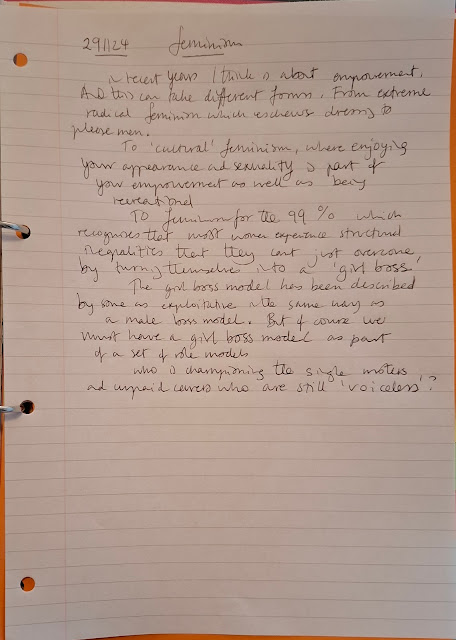 29/1/24 feminism
in recent years I think is about empowerment.
And this can take different forms. From extreme
radical feminism which eschews dressing to
please men.
To 'cultural' feminism, where enjoying
your appearance and sexuality is part of
your empowerment as well as being
recreational
TO feminism for the 99 % which
recognises that most women experience structural
inequalities that they cant just overcome
by turning themselves into a 'girl boss'
The girl boss model has been described
by some as exploitative in the same way as
a male boss model. But of course we
must have a girl boss model as part
of a set of role models
who is championing the single mothers
and unpaid carers who are still 'voiceless'?